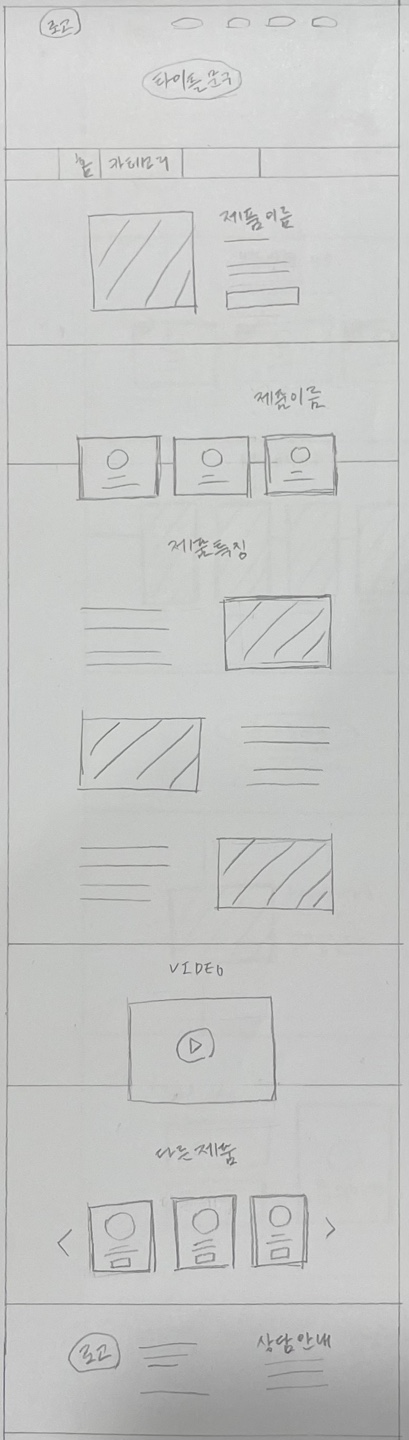 로고
타이틀 문구
홈 카테고리
제품이름
제품이름
제품특징
VIDEO
다른제품
로고
상담안내